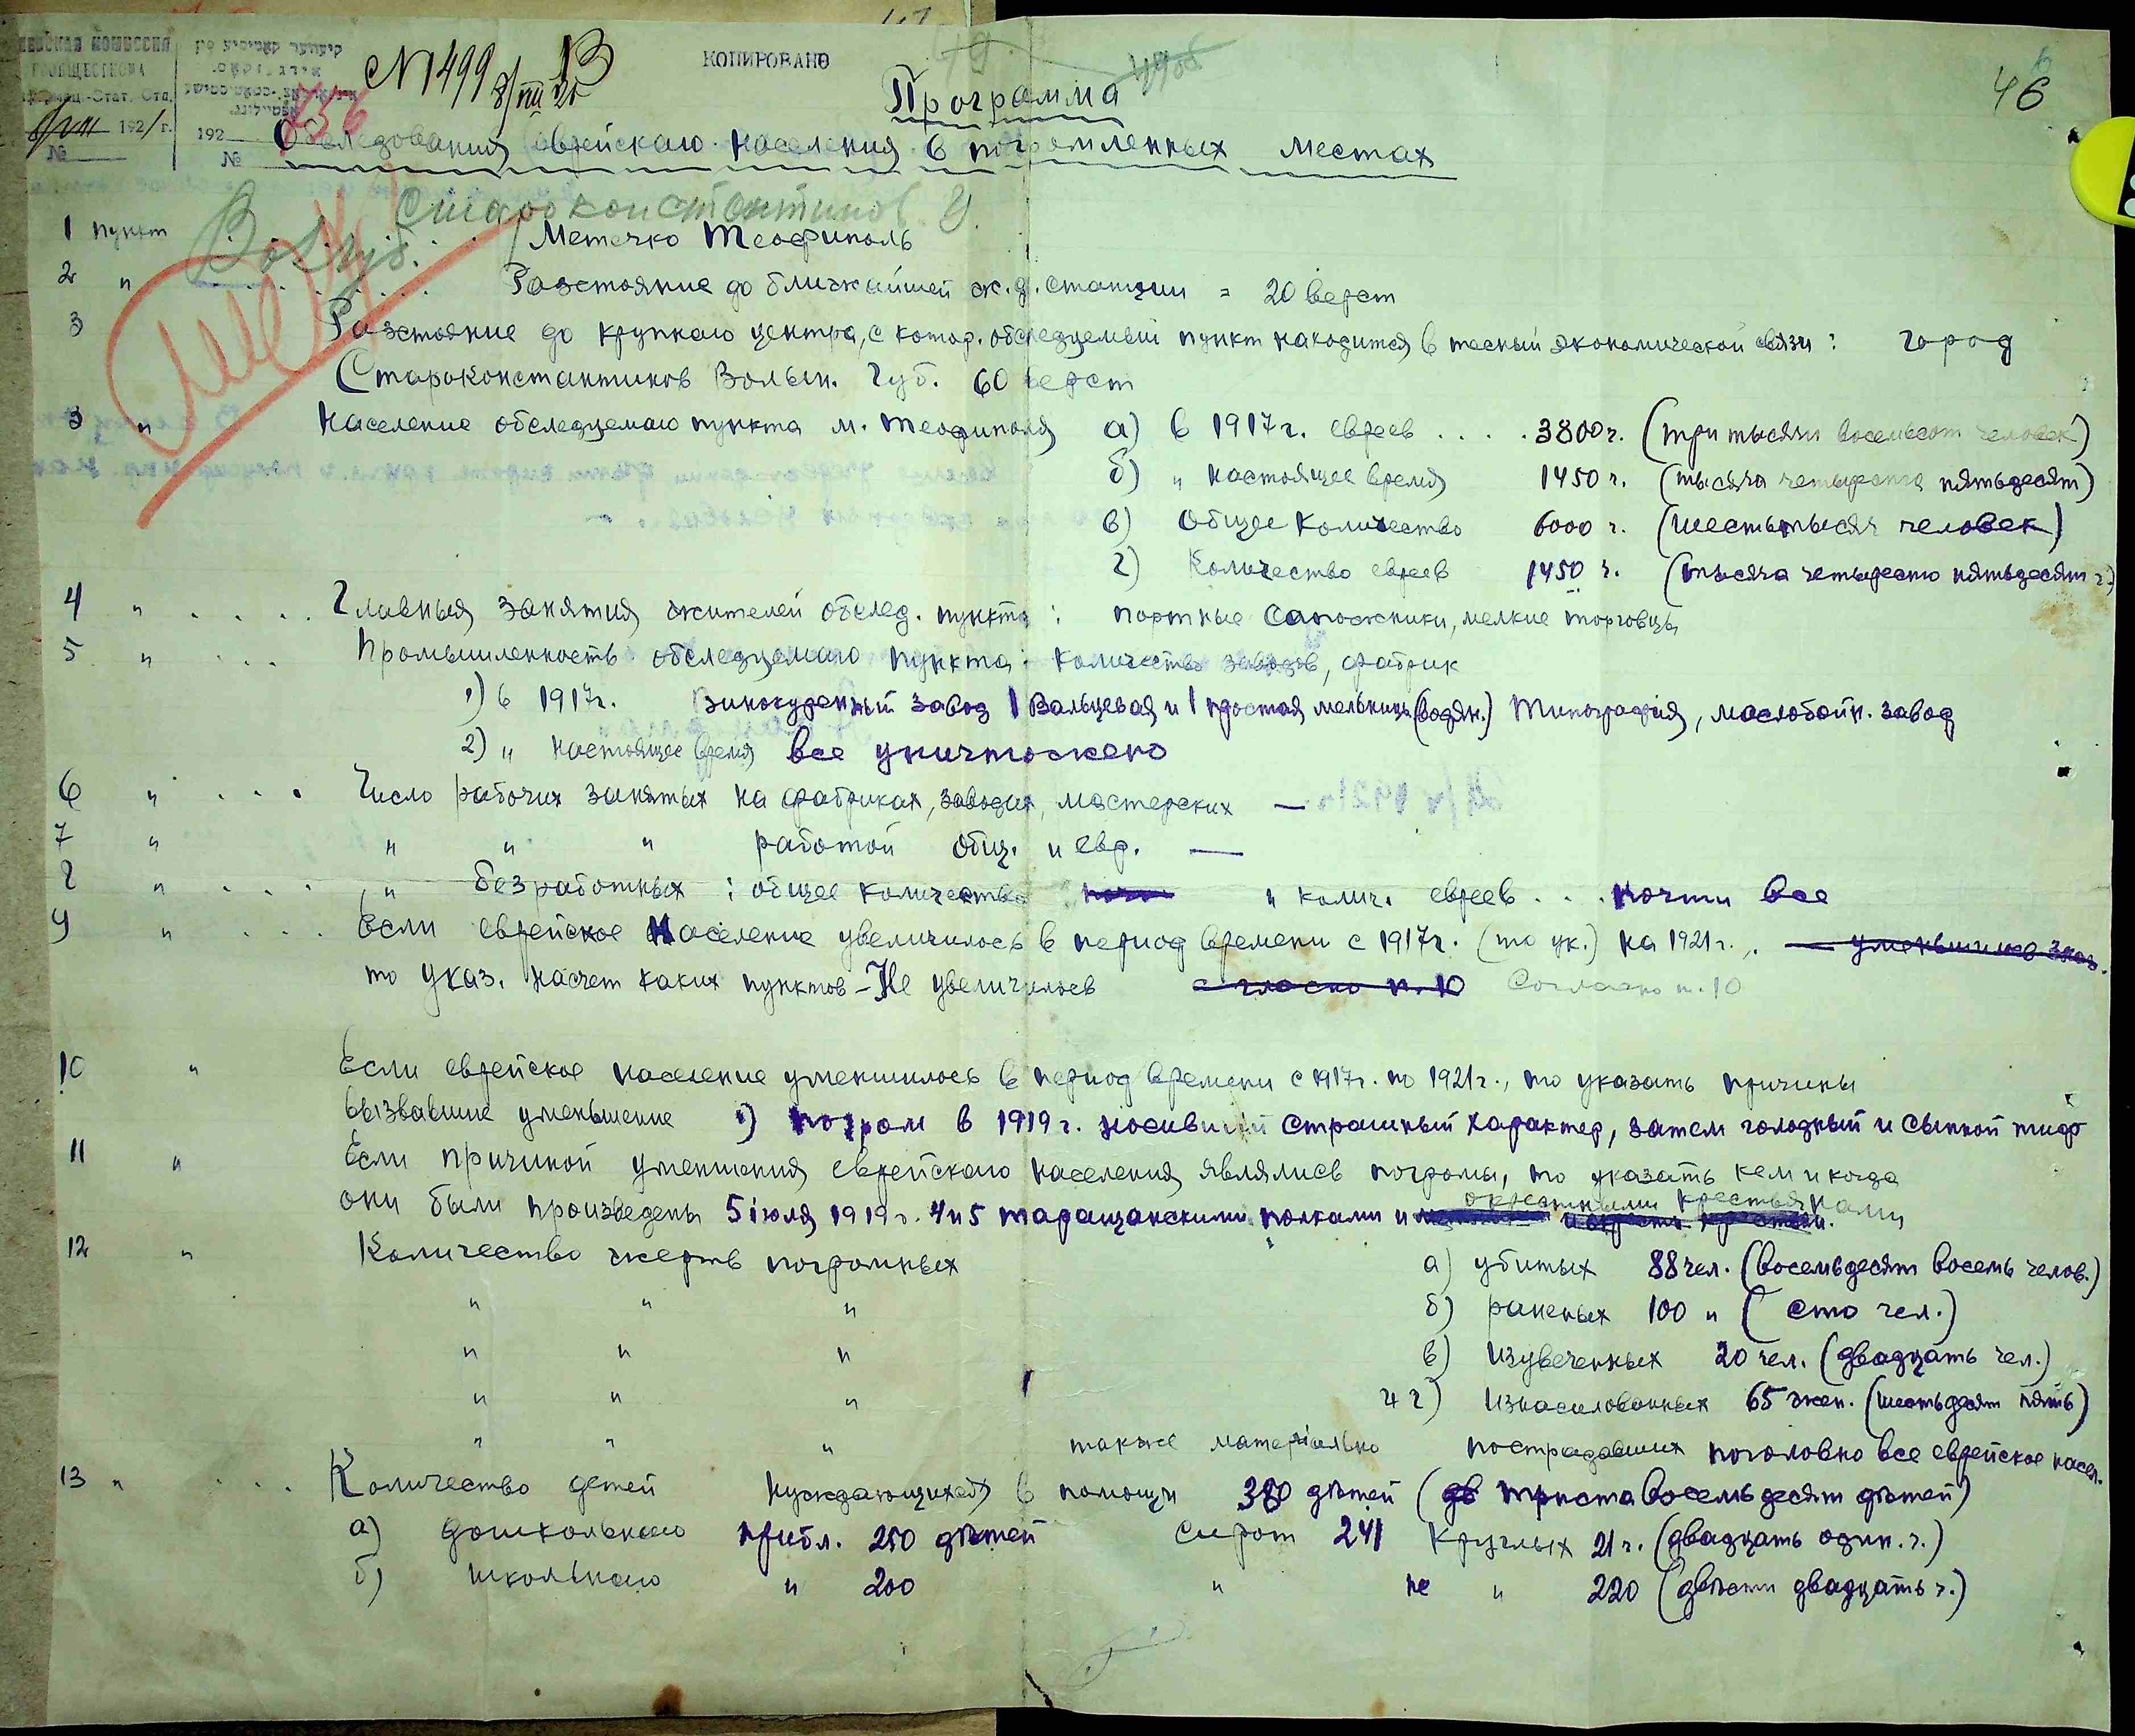 КОПИРОВАНО
46
№ 499
Программа
192
№
Обследования еврейскаго населения в погромленных местах
Староконстантинов. У.
Вол. губ.
1 пункт Местечко Теофиполь
2 " Разстояние до ближайшей ж.д. станции = 20 верст
3 Разстояние до крупнаго центра, с котор. обследуемый пункт находится в тесный экономической связи: город
Староконстантинов Волын. Губ. 60 верст
3 " Население обследуемаго пункта м. Теофиполя а) в 1917г. евреев .... 3800ч. (три тысячи восемьсот человек)
б) " настоящее время 1450 ч. (тысяча четыреста пятьдесят)
в) Общее количество 6000 ч. (шесть тысяч человек)
г) Количество евреев 1450 ч. (тысяча четыресто пятьдесят ч.)
4 " .... Главныя занятия жителей обслед. пункта: портные сапожники, мелкие торговцы
5 " ... Промышленность обследуемаго пункта: количество заводов, фабрик
1) в 1917г. Винокуренный завод 1 Вальцевая и 1 простая мельницы (водян.) Типография, маслобойн. завод
2) " настоящее время все уничтожено
6 " ... Число рабочих занятых на фабриках, заводах, мастерских —
7 " " " " работой общ. и евр. —
8 " ... " безработных: общее количество " колич. евреев ... почти все
9 " ... Если еврейское население увеличилось в период времени с 1917г. (то ук.) на 1921г.,
то указ. насчет каких пунктов - Не увеличилось согласно п. 10 Согласно п. 10
10 " Если еврейское население уменшилось в период времени с 1917г. по 1921г., то указать причины
вызвавшие уменьшение 1) погром в 1919г. носивший страшный характер, затем голодный и сыпной тиф
11 " Если причиной уменшения еврейскаго населения являлись погромы, то указать кем и когда
они были произведены 5 iюля 1919г. 4 и 5 таращанскими полками и окрестными крестьянами
12 " Количество жертв погромных а) убитых 88 чел. (восемьдесят восемь челов.)
" " " б) раненых 100 " (сто чел.)
" " " в) изувеченных 20 чел. (двадцать чел.)
" " " и г) изнасилованных 65 жен. (шестьдесят пять)
" " " также материально пострадавших поголовно все еврейское насел.
13 " ... Количество детей нуждающихся в помощи 380 дѣтей (триста восемьдесят дѣтей)
а) дошкольнаго прибл. 250 дѣтей Сирот 241 Круглых 21 ч. (двадцать один. ч.)
б) школьнаго " 200 " не " 220 (двѣсти двадцать ч.)